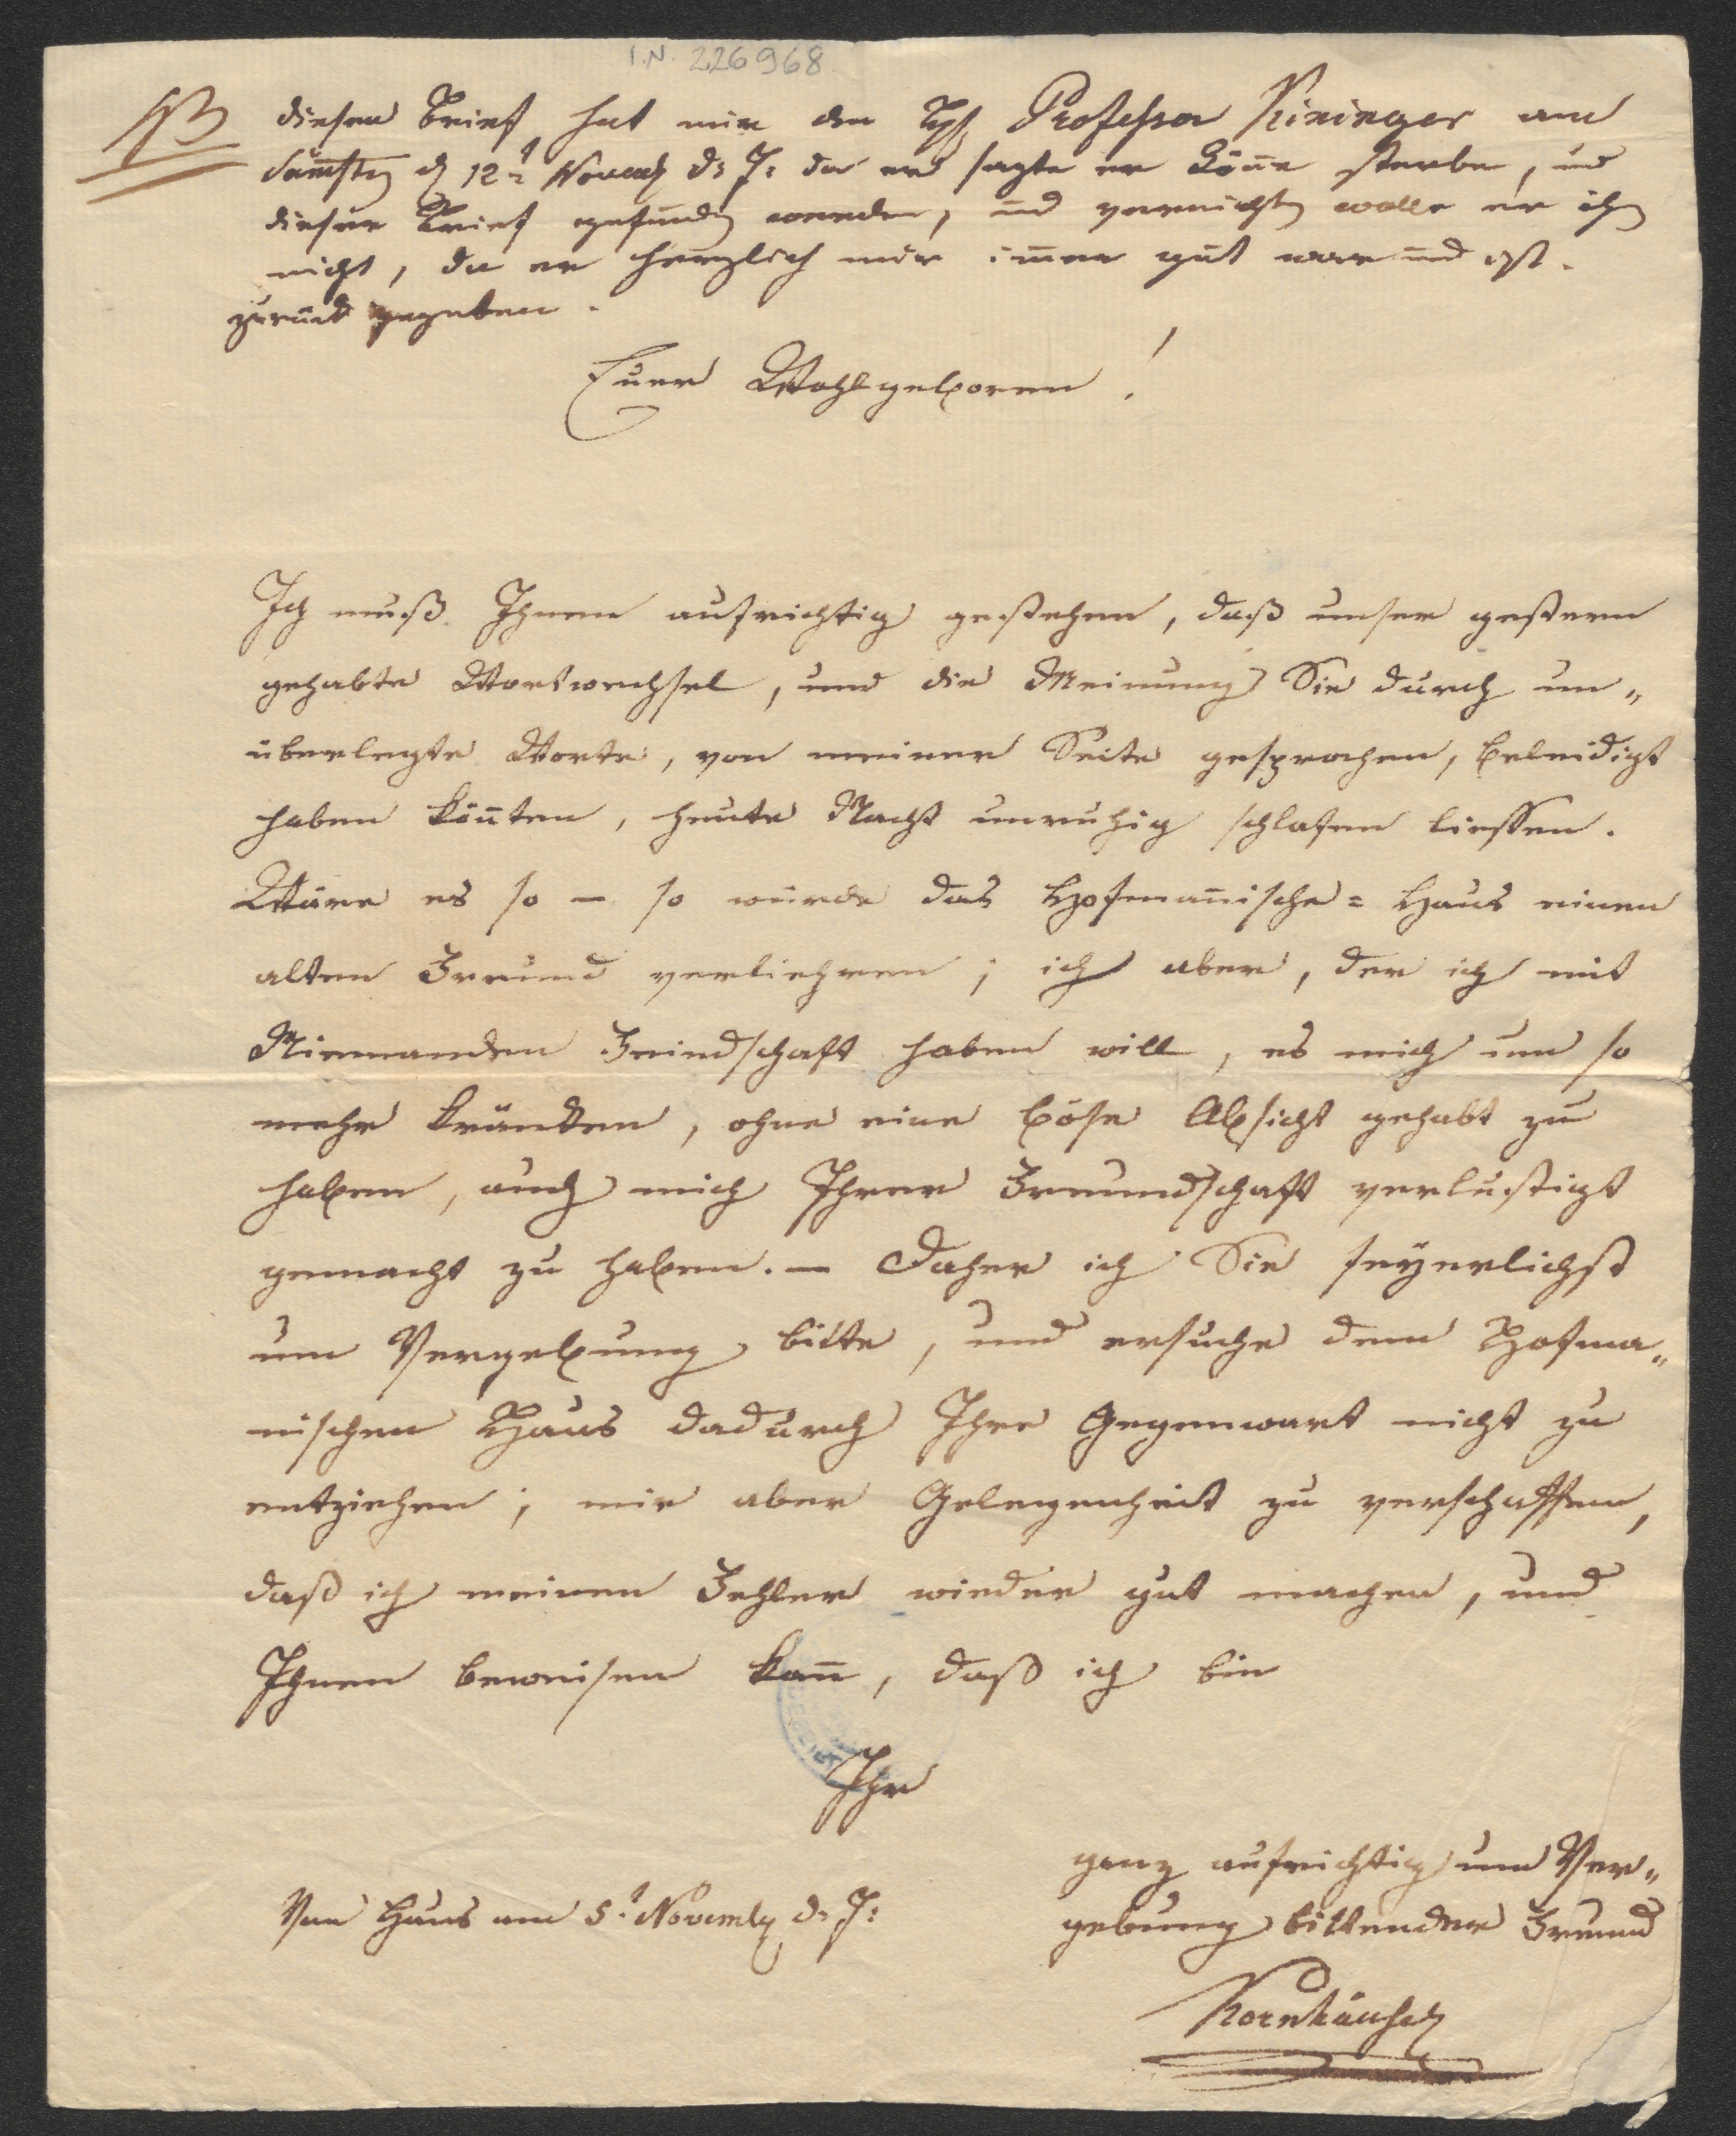 I.N. 226968
NB diesen Brief hat mir der H: Professor Kininger am
Samstag d 12t Novemb d: J: da er sagte er köne sterbe, und
dieser Brief gefunden werden, und vernichten wolle er ihn
nicht, da er herzlich mir imer gut war und ist.
zurück gegeben.
Euer Wohlgeboren!
Ich muß Ihnen aufrichtig gestehen, daß unser gestern
gehabte Wortwechsel, und die Meinung Sie durch un„
überlegte Worte, von meiner Seite gesprochen, beleidigt
haben kön̄ten, heute Nacht unruhig schlafen liessen.
Wäre es so – so würde das Hofman̄ische = Haus einen
alten Freund verliehren; ich aber, der ich mit
Niemanden Feindschaft haben will, es mich um so
mehr kränken, ohne eine böse Absicht gehabt zu
haben, auch mich Ihrer Freundschaft verlustigt
gemacht zu haben. – Daher ich Sie feyerlichst
um Vergebung bitte, und ersuche dem Hofma„
nischen Haus dadurch Ihre Gegenwart nicht zu
entziehen; mir aber Gelegenheit zu verschaffen,
daß ich meinen Fehler wieder gut machen, und
Ihnen beweisen kan̄, daß ich bin
Ihr
ganz aufrichtig um Ver„
Von Haus am 5t Novemb d: J:
gebung bittender Freund
Kornhäusel